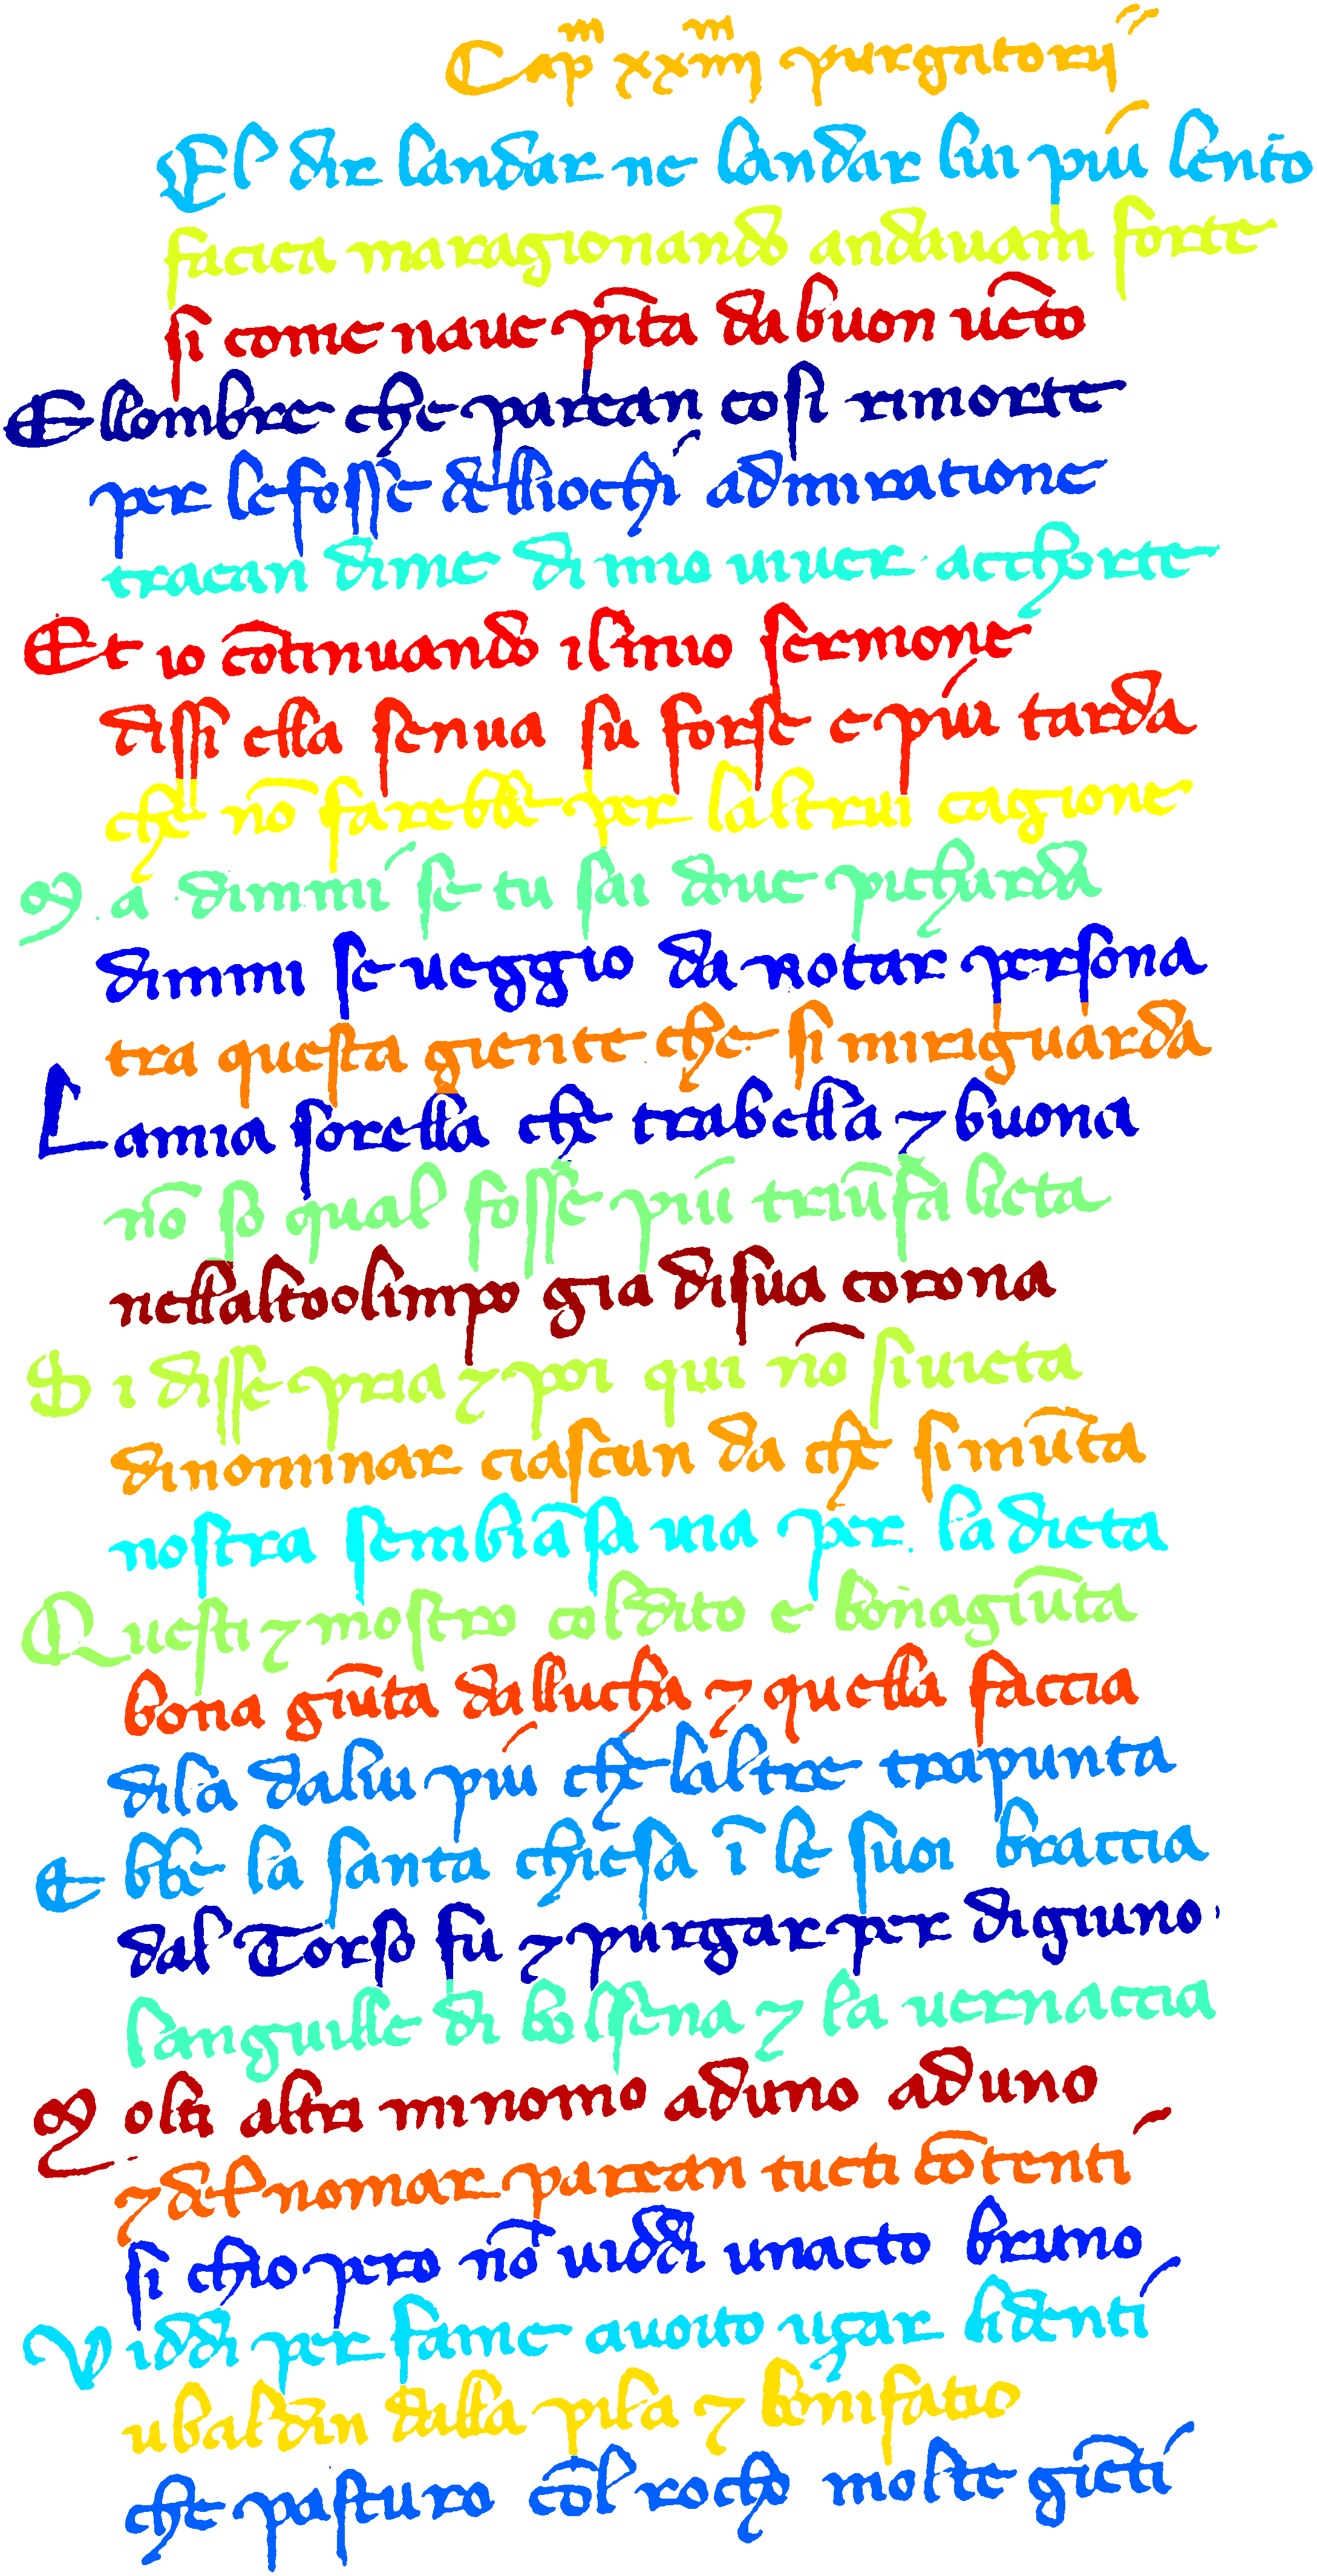 Capm xxmiiii purgatorii
El dir landar ne landar lui piu lento
facica maragionando andauam forte
si come naue pīta da buon uēto
Ellombre che parean cosi rimorte
per lefosse delliochi admiratione
traean dime di mio uiuer acchorte
Et io cōtinuando ilmio sermone
dissi ella senua su forse e piu tarda
che nō farebbe per laltrui cagione
M a dimmi se tu sai doue picharda
dimmi se ueggio da notar persona
tra questa giente che si miriguarda
Lamia sorella che trabella ⁊ buona
nō so qual fosse piu triūfa lieta
nellaltoolimpo gia disua corona
S i disse pria ⁊ poi qui nō siuieta
dinominar ciascun da che simūta
nostra sembiāsa uia per la dieta
Questi ⁊ mostro coldito e bonagiūta
bona giūta dallucha ⁊ quella faccia
dila dalui piu che laltre trapunta
E bbe la santa chiesa ī le suoi braccia
dal Torso fu ⁊ purgar per digiuno
languille di bolsena ⁊ la uernaccia
M olti altri minomo aduno aduno
⁊ del nomar parean tucti cōtenti
si chio pero nō uiddi unacto bruno
Viddi per fame auoito uçar lidenti
ubaldin dalla pila ⁊ bonifatio
che pasturo cōl rocho molte giēti